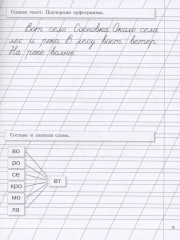 Спиши текст. Подчеркни орфограммы.
Вот село Сосновка. Около села
лес и река. В лесу воет ветер.
На реке волны.
Составь и запиши слова.
во
ро
се
кро
мо
ла
ет